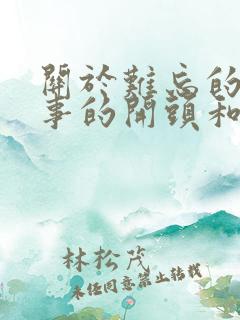 關於難忘的
事的開頭和
林松茂
未經同意禁止轉載